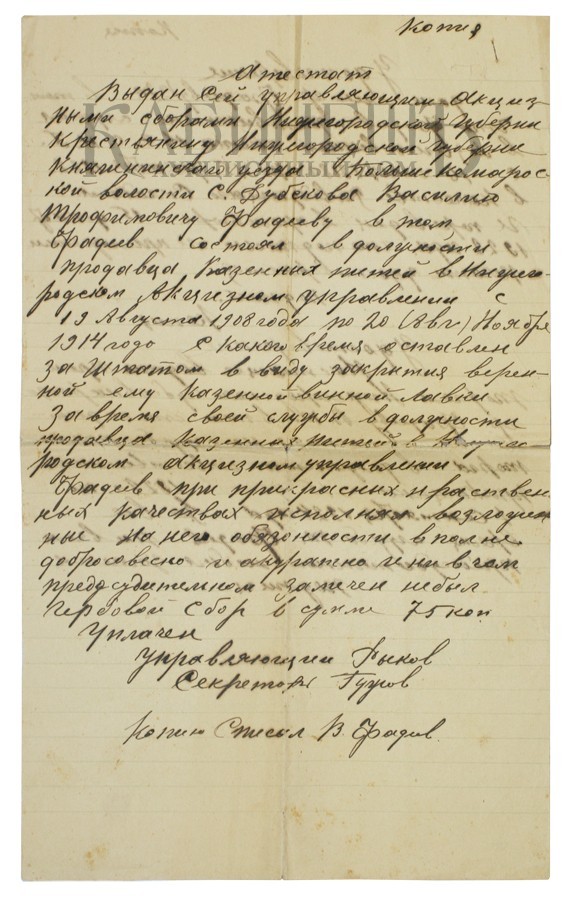 Копия
Атестат
Выдан Сей управляющим Акциз-
ными сборами Нижегородской Губернии
Крестьянину Нижегородской губернии
Княгининского уезда Больше Кемарос-
кой волости С. Дубскова Василию
Трофимовичу Фадееву в том
Фадеев состоял в должности
продавца Казенных питей в Нижего-
родском Акцизном управлении с
19 Августа 1908 года по 20 (8вг) Ноября
1914 годо с какого время оставлен
За Штатом в виду закрытия верен-
ной ему Казенной винной Лавки
За время своей службы в должности
продавца Казенных питей в Нижего
родском Акцизном управлении
Фадеев при прикрасных нраствен
ных качествах исполнял возложен
ные на него обязонности вполне
добросовесно и акуратно и ни в чем
предосудительном замечен небыл
Гербовой Сбор в сумме 75 коп
Уплачен
Управляющий Рыков
Секретарь
Копию Списал В. Фадеев
КАБИНЕТЪ
АУКЦИОННЫЙ ДОМ